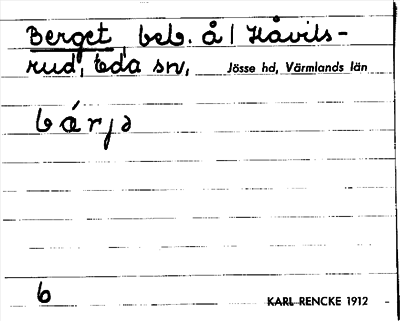 Berget beb. å / Håvils-
rud, Eda sn, Jösse hd, Värmlands län
bárjə
6
KARL RENCKE 1912